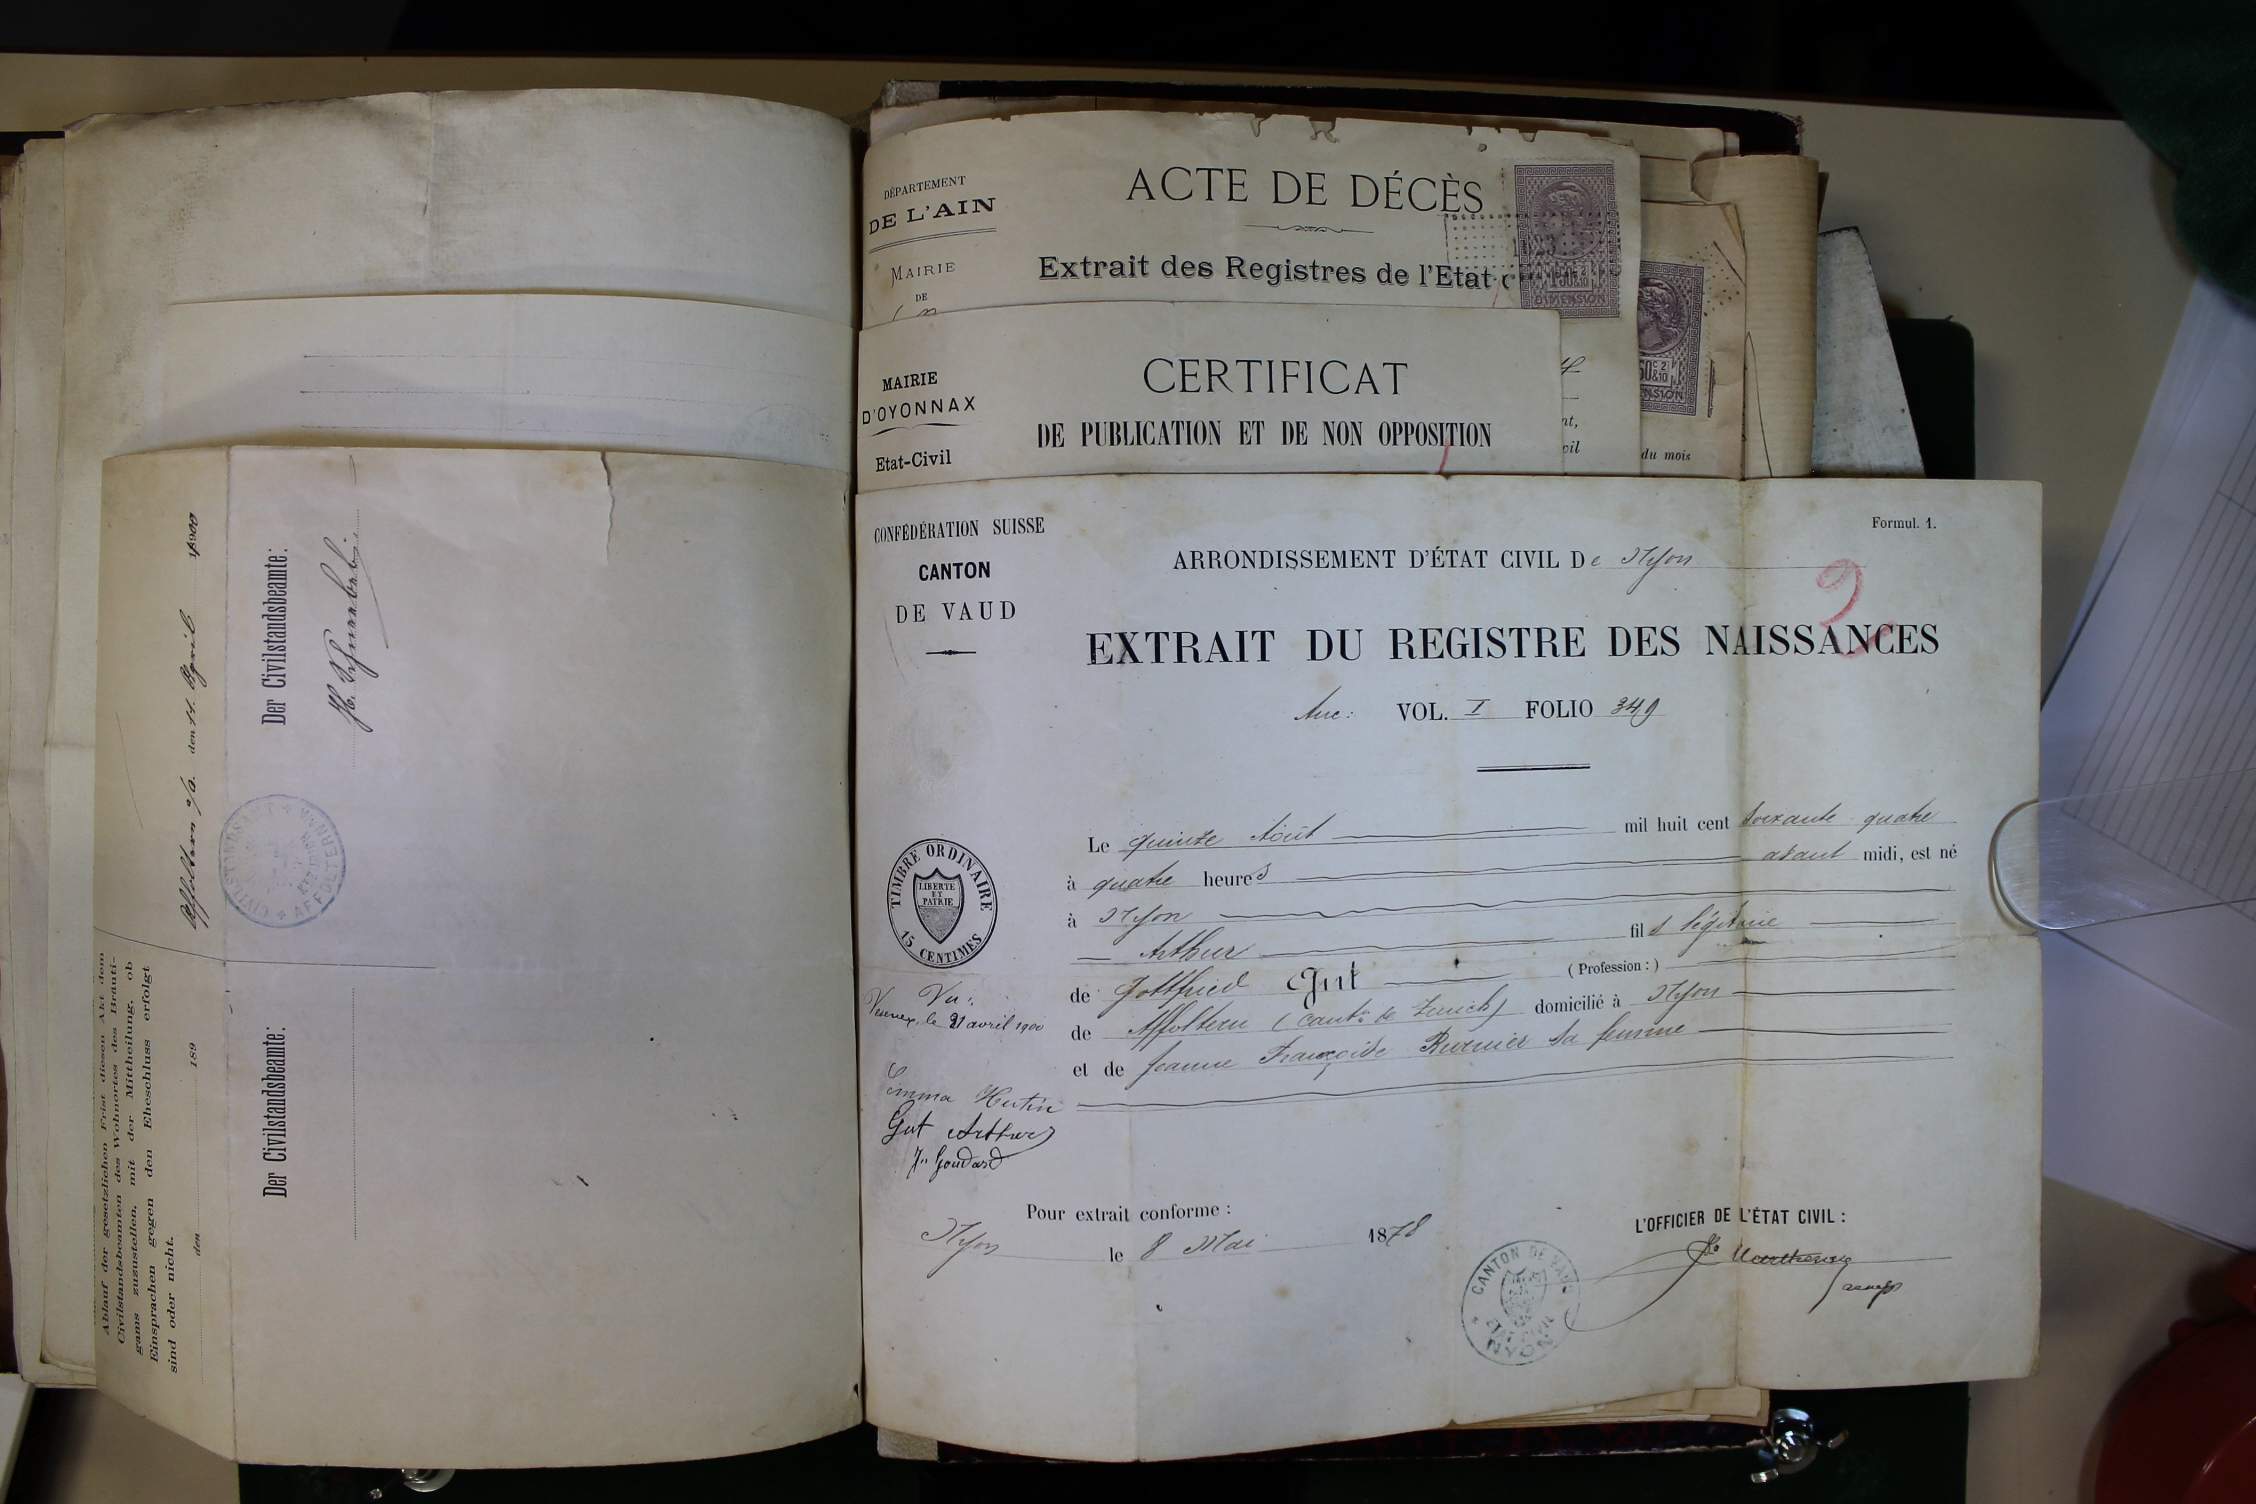 Ablauf der gesetzlichen Frist diesen Akt dem
Civilstandsbeamten des Wohnortes des Bräuti-
gams zuzustellen, mit der Mittheilung, ob
Einsprachen gegen den Eheschluss erfolgt
sind oder nicht.
den 189
Affoltern a/a. den 11. April 1900
Der Civilstandsbeamte:
Der Civilstandsbeamte:
CIVILSTANDSAMT
AFFOLTERN
DÉPARTEMENT
DE L'AIN
MAIRIE
DE
ACTE DE DÉCÈS
Extrait des Registres de l'Etat c
DIMENSION
MAIRIE
D'OYONNAX
Etat-Civil
CERTIFICAT
DE PUBLICATION ET DE NON OPPOSITION
du mois
CONFÉDÉRATION SUISSE
CANTON
DE VAUD
Formul. 1.
ARRONDISSEMENT D'ÉTAT CIVIL De Nyon
2
EXTRAIT DU REGISTRE DES NAISSANCES
Anc: VOL. I FOLIO 349
Le quinze Août mil huit cent soixante quatre
à quatre heures avant midi, est né
à Nyon
Arthur fils légitime
de Gottfried Gut (Profession:)
de Affoltern (canton de Zurich) domicilié à Nyon
et de Jeanne Françoise Burnier sa femme
TIMBRE ORDINAIRE
LIBERTE
ET
PATRIE
15 CENTIMES
Vu:
le 21 avril 1900
Emma Hutin
Gut Arthur
Js Goudard
Pour extrait conforme:
Nyon le 8 Mai 1878
L'OFFICIER DE L'ÉTAT CIVIL:
CANTON DE VAUD
ETAT CIVIL
NYON